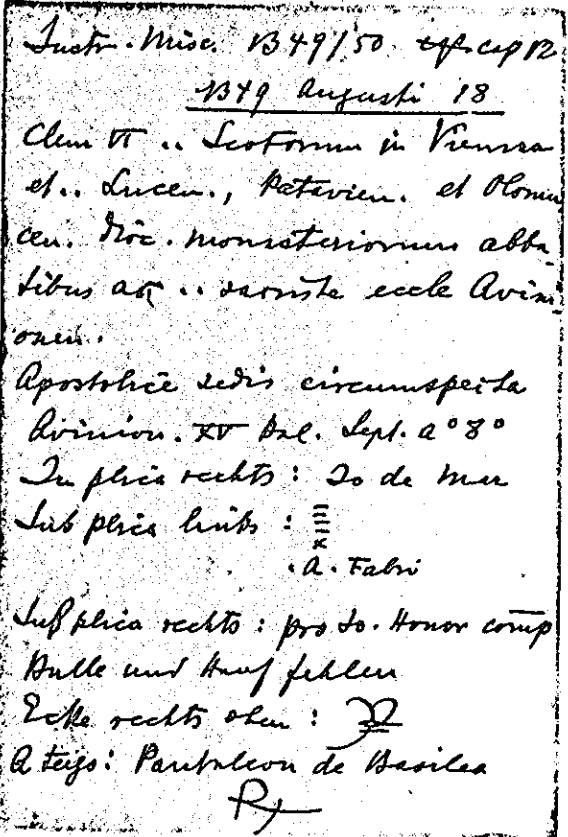 Instr. Misc. 1349/50 cap 12
1349 Augusti 18
Clem VI .. Scotorum in Vienna
et .. Lucen., Patavien. et Olomu
cen. dioc. monasteriorum abba
tibus ac .. sacriste eccle Avini
onen.
Apostolice sedis circumspecta
Avinion. XV Kal. Sept. a° 8°
In plica rechts: Jo de Mur
Sub plica links:
.A. Fabri
Sub plica rechts: pro Jo. Honor comp
Bulle und Hanf fehlen
Ecke rechts oben:
A tergo: Pantaleon de Basilea
R